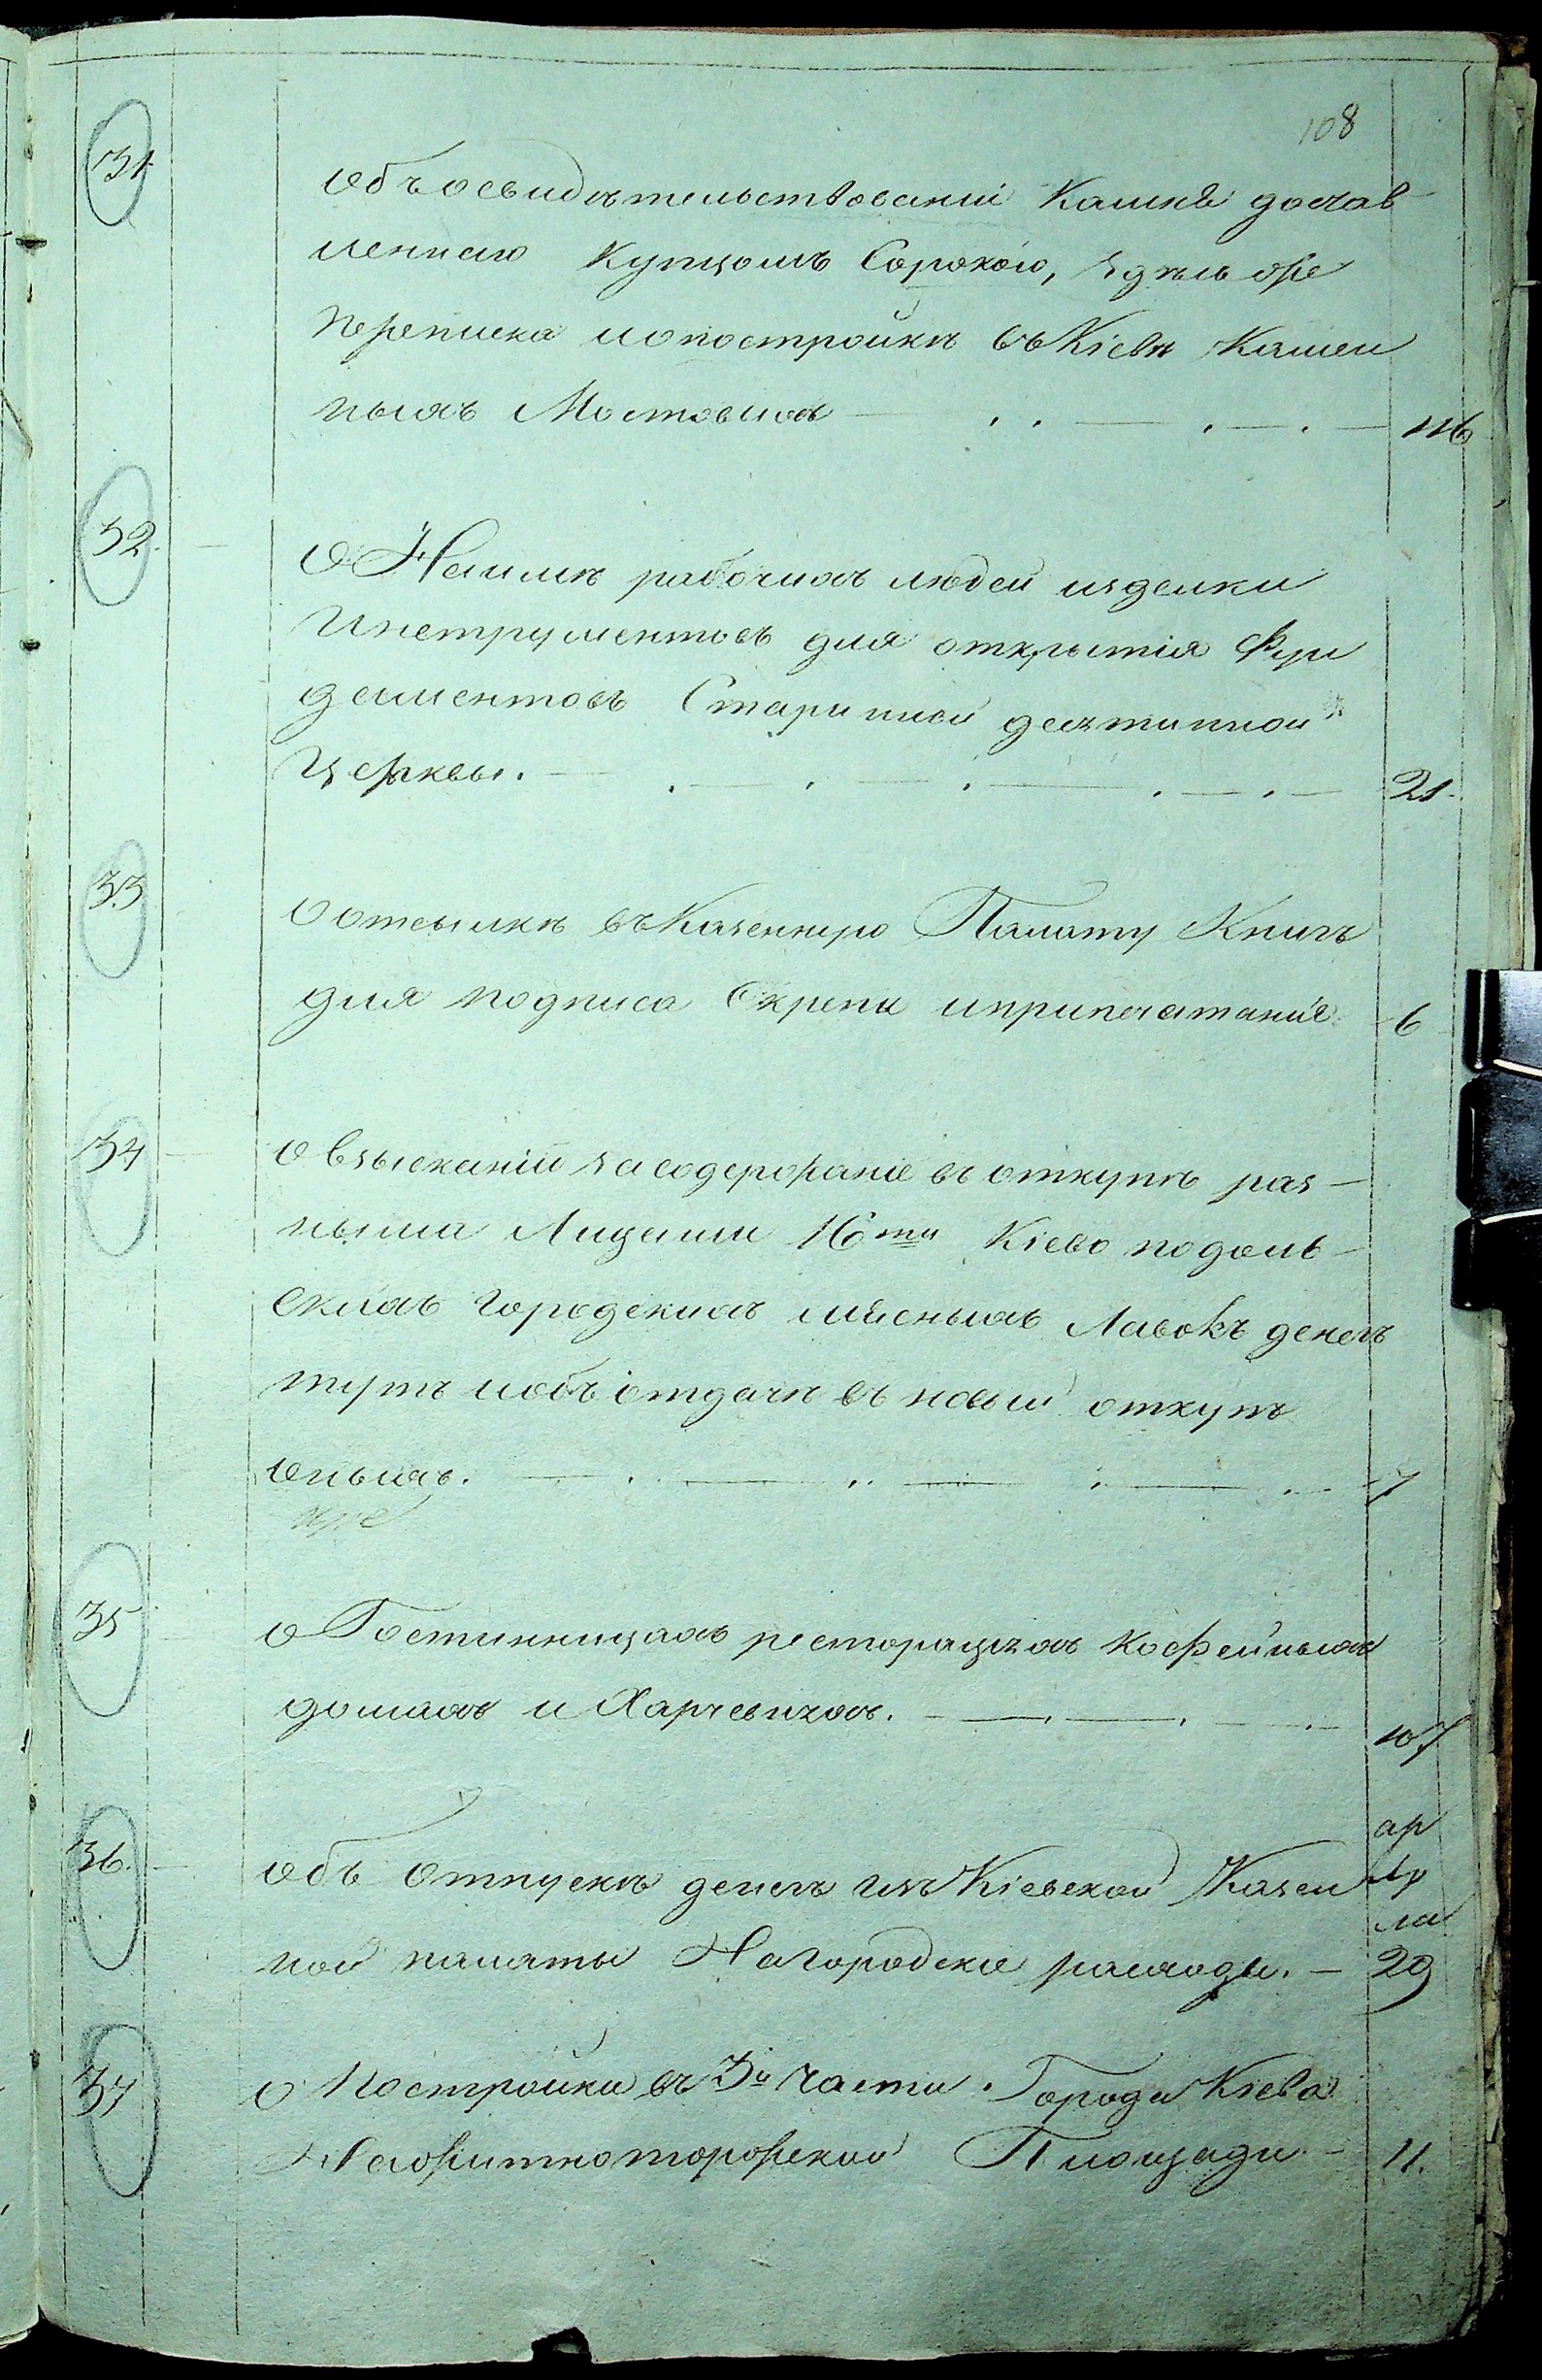 108
31
объ освидѣтельствованіи Камня достав
леннаго Купцомъ Сорокою, здѣсь же
переписка и о постройкѣ въ Кіевѣ Камен
ныхъ Мостовыхъ 116
32.
О Наймѣ рабочихъ людей и зделки
Инструментовъ для открытія Фун
даментовъ Старинной десятинной
Церквы. 21.
33
О отсылкѣ въ Казенную Палату Книгъ
для подписа Скрепы и припечатаніе 6
34
О взысканіи за содержаніе въ откупѣ раз-
ными Лицами 16ти Кіево подоль-
скихъ городскихъ мясныхъ Лавокъ денегъ
тутъ и объ отдачѣ въ новый откупъ
оныхъ. 7
35
О Гостинницахъ ресторацияхъ Кофейныхъ
домахъ и Харчевняхъ. 107
36.
ар
ту
ла
объ отпускѣ денегъ изъ Кіевской Казен
ной палаты На городскіе расходы. 29
37
О Постройки въ 3й Части Города Кіева
На Житноторжской Площади 11.